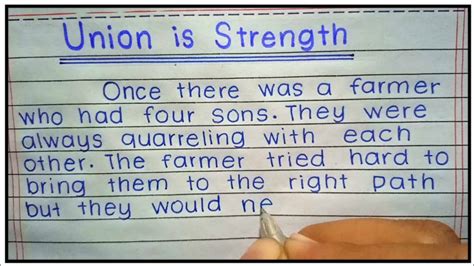 Union is Strength
Once there was a farmer
who had four sons. They were
always quarreling with each
other. The farmer tried hard to
bring them to the right path
but they would ne